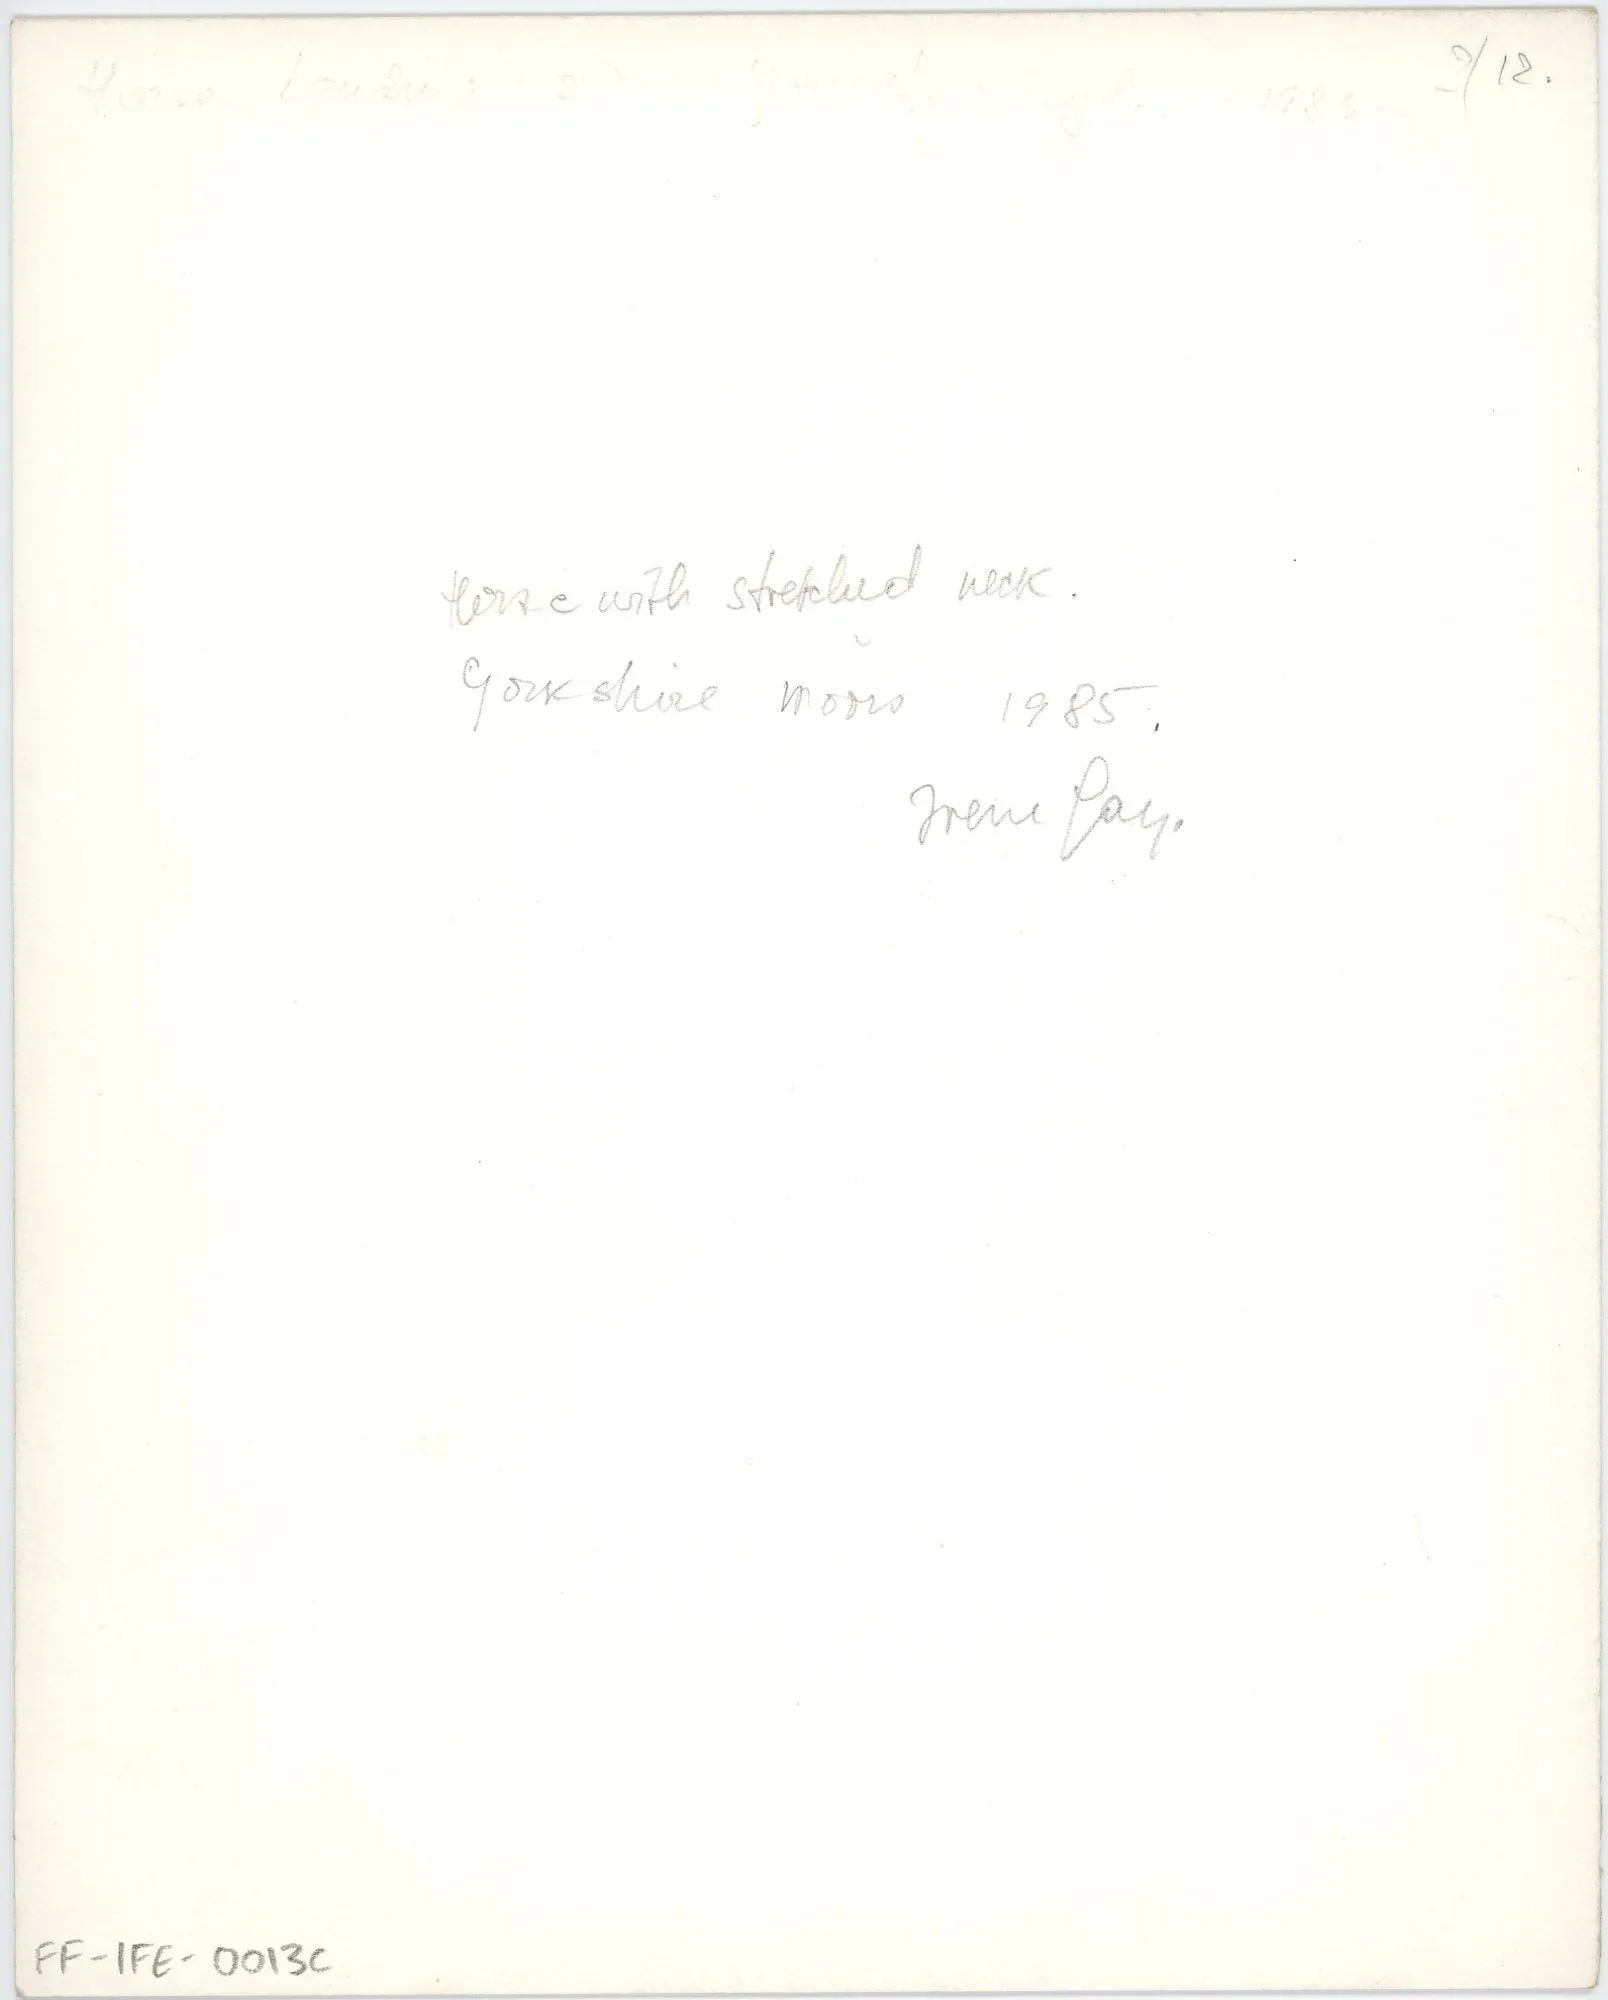 2/12.
Horse with stretched neck.
Yorkshire Moors 1985.
Irene Fay.
FF-IFE-0013C